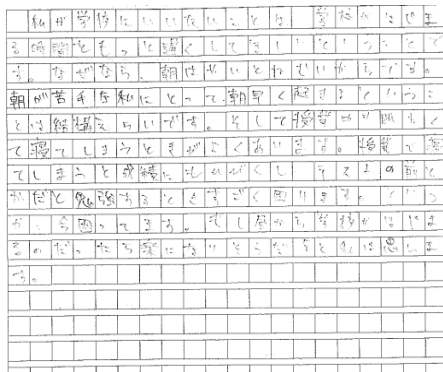 私が学校にいいたいことは、学校がはじま
る時間をもっと遅くしてほしいということで
す。なぜなら、朝はねむい からです。
朝が苦手な私にとって、朝早く起きるというこ
とは結構えらいです。そして授業 眠く
て寝てしまうときがよくあります。授業で寝
てしまうと成績に し、テストの前と
かだと勉強するときすごく困ります。
今困ってます。もし昼から学校がはじま
るのだったら楽になる 思いま
す。